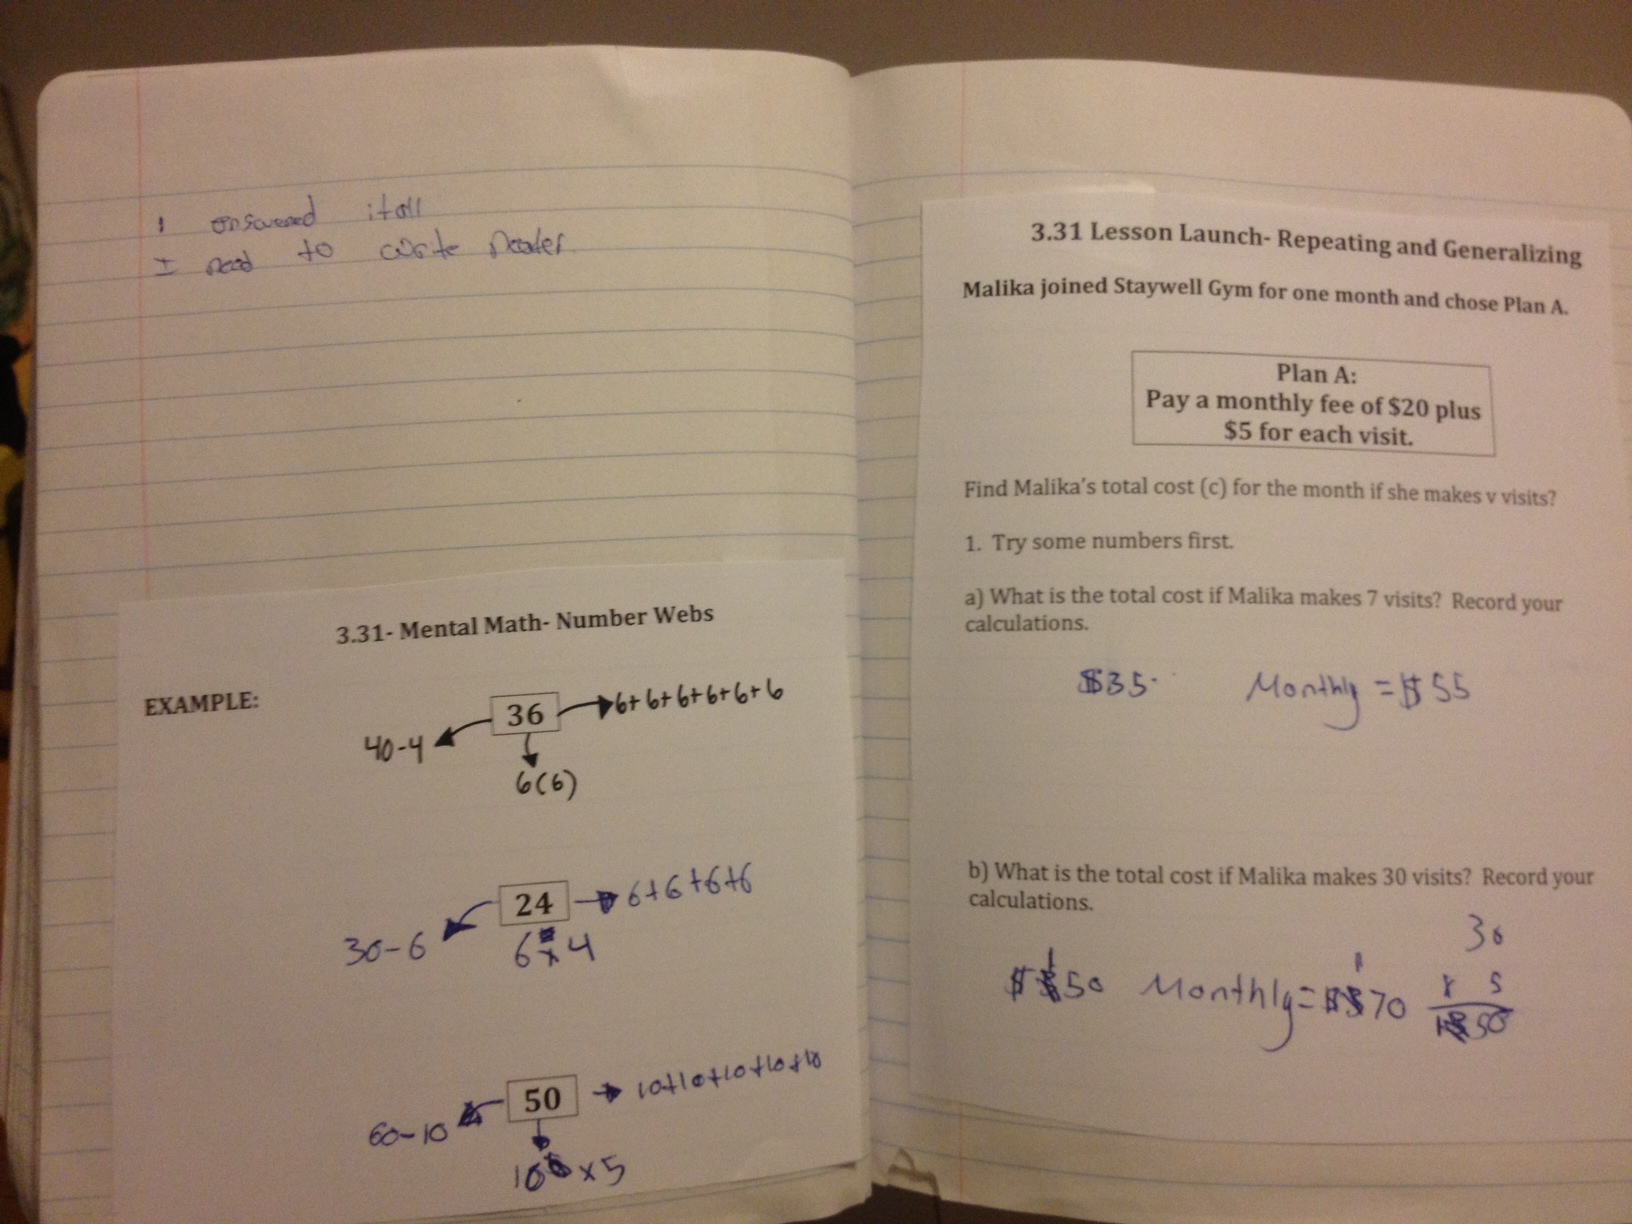 I answered it all
I need to write neater
3.31- Mental Math- Number Webs
EXAMPLE:
36
6+6+6+6+6+6
40-4
6(6)
24
6+6+6+6
30-6
6 x 4
50
10+10+10+10+10
60-10
10 x 5
3.31 Lesson Launch- Repeating and Generalizing
Malika joined Staywell Gym for one month and chose Plan A.
Plan A:
Pay a monthly fee of $20 plus
$5 for each visit.
Find Malika's total cost (c) for the month if she makes v visits?
1. Try some numbers first.
a) What is the total cost if Malika makes 7 visits? Record your
calculations.
$35. Monthly = $55
b) What is the total cost if Malika makes 30 visits? Record your
calculations.
30
x 5
150
$150 Monthly = $170